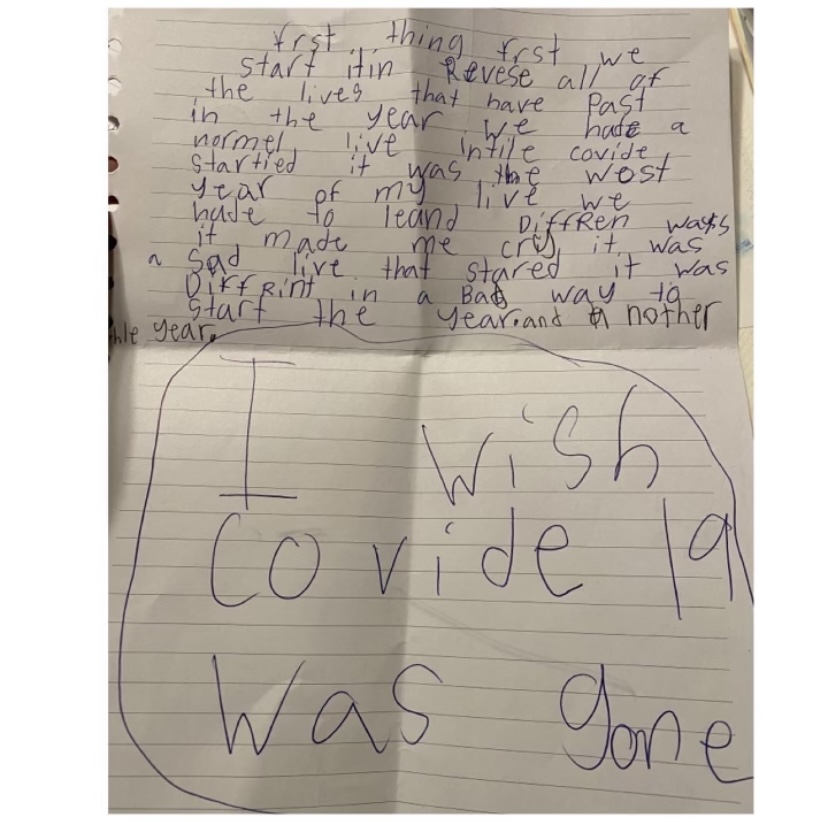 frst thing frst we
start it in Revese all of
the lives that have Past
in the year we hade a
normel live intile covide
startied it was the wost
year of my live we
hade to leand DiffRen ways
it made me cry it was
a Sad live that stared it was
DiffRint in a Bad way to
Start the year. and a nother
hle year.
I wish
Covide 19
was gone